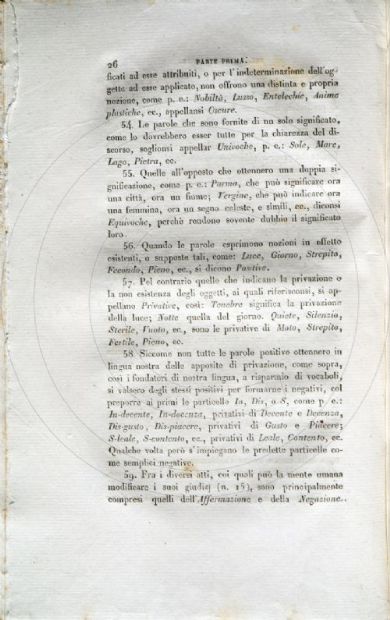 26 PARTE PRIMA.
ficati ad esse attribuiti, o per l'indeterminazione dell'og-
getto ad esse applicato, non offrono una distinta e propria
nozione, come p. e.: Nobiltà, Lusso, Entelechie, Anime
plastiche, ec., appellansi Oscure.
54. Le parole che sono fornite di un solo significato,
come lo dovrebbero esser tutte per la chiarezza del di-
scorso, soglionsi appellar Univoche, p. e.: Sole, Mare,
Lago, Pietra, ec.
55. Quelle all'opposto che ottennero una doppia si-
gnificazione, come p. e.: Parma, che può significare ora
una città, ora un fiume; Vergine, che può indicare ora
una femmina, ora un segno celeste, e simili, ec., diconsi
Equivoche, perchè rendono sovente dubbio il significato
loro.
56. Quando le parole esprimono nozioni in effetto
esistenti, o supposte tali, come: Luce, Giorno, Strepito,
Fecondo, Pieno, ec., si dicono Positive.
57. Pel contrario quelle che indicano la privazione o
la non esistenza degli oggetti, ai quali riferisconsi, si ap-
pellano Privative, così: Tenebre significa la privazione
della luce; Notte quella del giorno. Quiete, Silenzio,
Sterile, Vuoto, ec., sono le privative di Moto, Strepito,
Fertile, Pieno, ec.
58. Siccome non tutte le parole positive ottennero in
lingua nostra delle apposite di privazione, come sopra,
così i fondatori di nostra lingua, a risparmio di vocaboli,
si valsero degli stessi positivi per formarne i negativi, col
preporre ai primi le particelle In, Dis, o S, come p. e.:
In-decente, In-decenza, privativi di Decente e Decenza,
Dis-gusto, Dis-piacere, privativi di Gusto e Piacere;
S-leale, S-contento, ec., privativi di Leale, Contento, ec.
Qualche volta però s'impiegano le predette particelle co-
me semplici negative.
59. Fra i diversi atti, coi quali può la mente umana
modificare i suoi giudizj (n. 15), sono principalmente
compresi quelli dell'Affermazione e della Negazione.